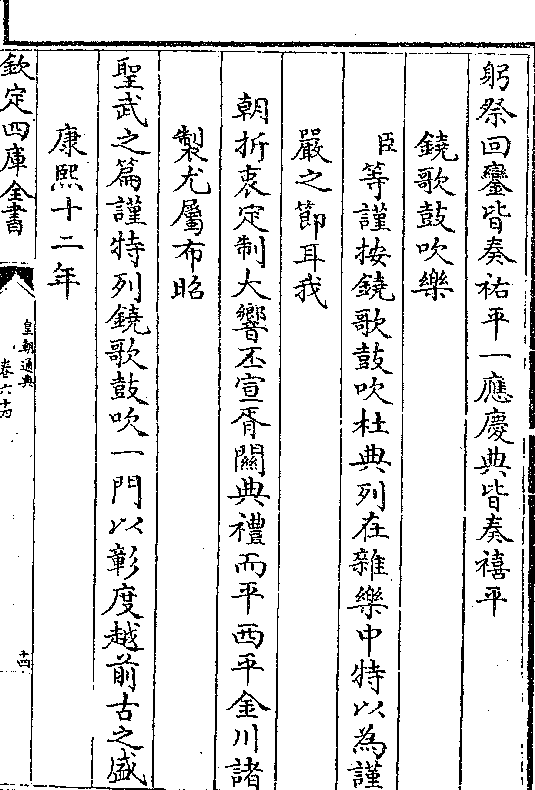 躬祭回鑾皆奏祐平一應慶典皆奏禧平
鐃歌鼓吹樂
臣等謹按鐃歌鼓吹杜典列在雜樂中特以為謹
嚴之節耳我
朝折衷定制大響丕宣胥關典禮而平西平金川諸
製尤屬布昭
聖武之篇謹特列鐃歌鼓吹一門以彰度越前古之盛
康熙十二年
欽定四庫全書
皇朝通典
卷六十四
十四